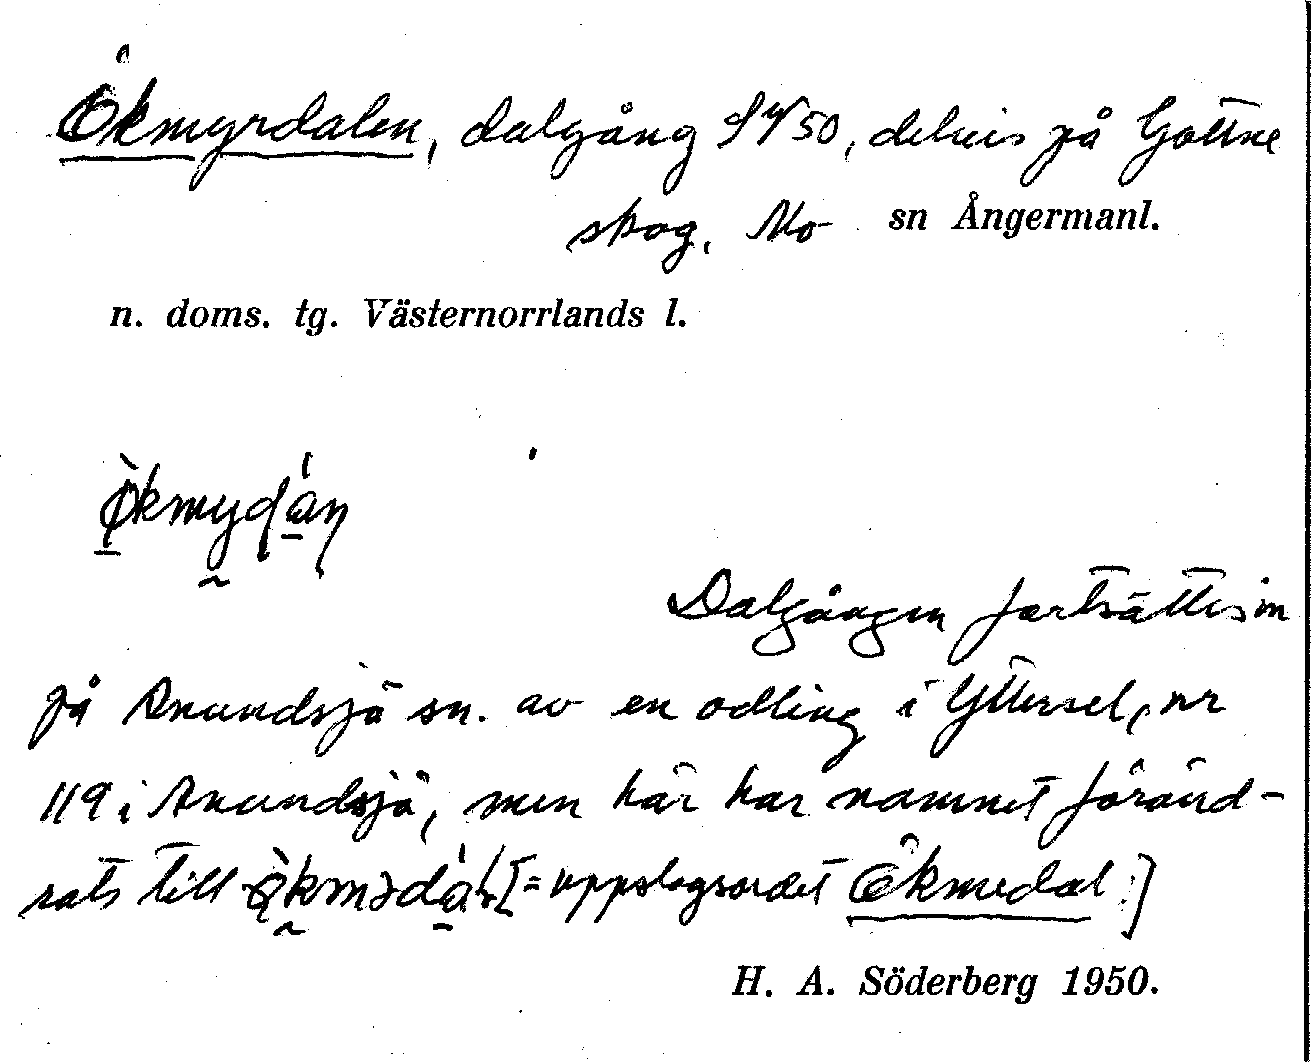 Ökmyrdalen, dalgång SV50, delvis på Gottne
skog, Mo sn Ångermanl.
n. doms. tg. Västernorrlands l.
Dalgången fortsättes in
på Anundsjö sn. av en odling i Yttersel, nr
119 i Anundsjö, men här har namnet föränd-
rats till [= uppslagsordet Ökmedal]
H. A. Söderberg 1950.